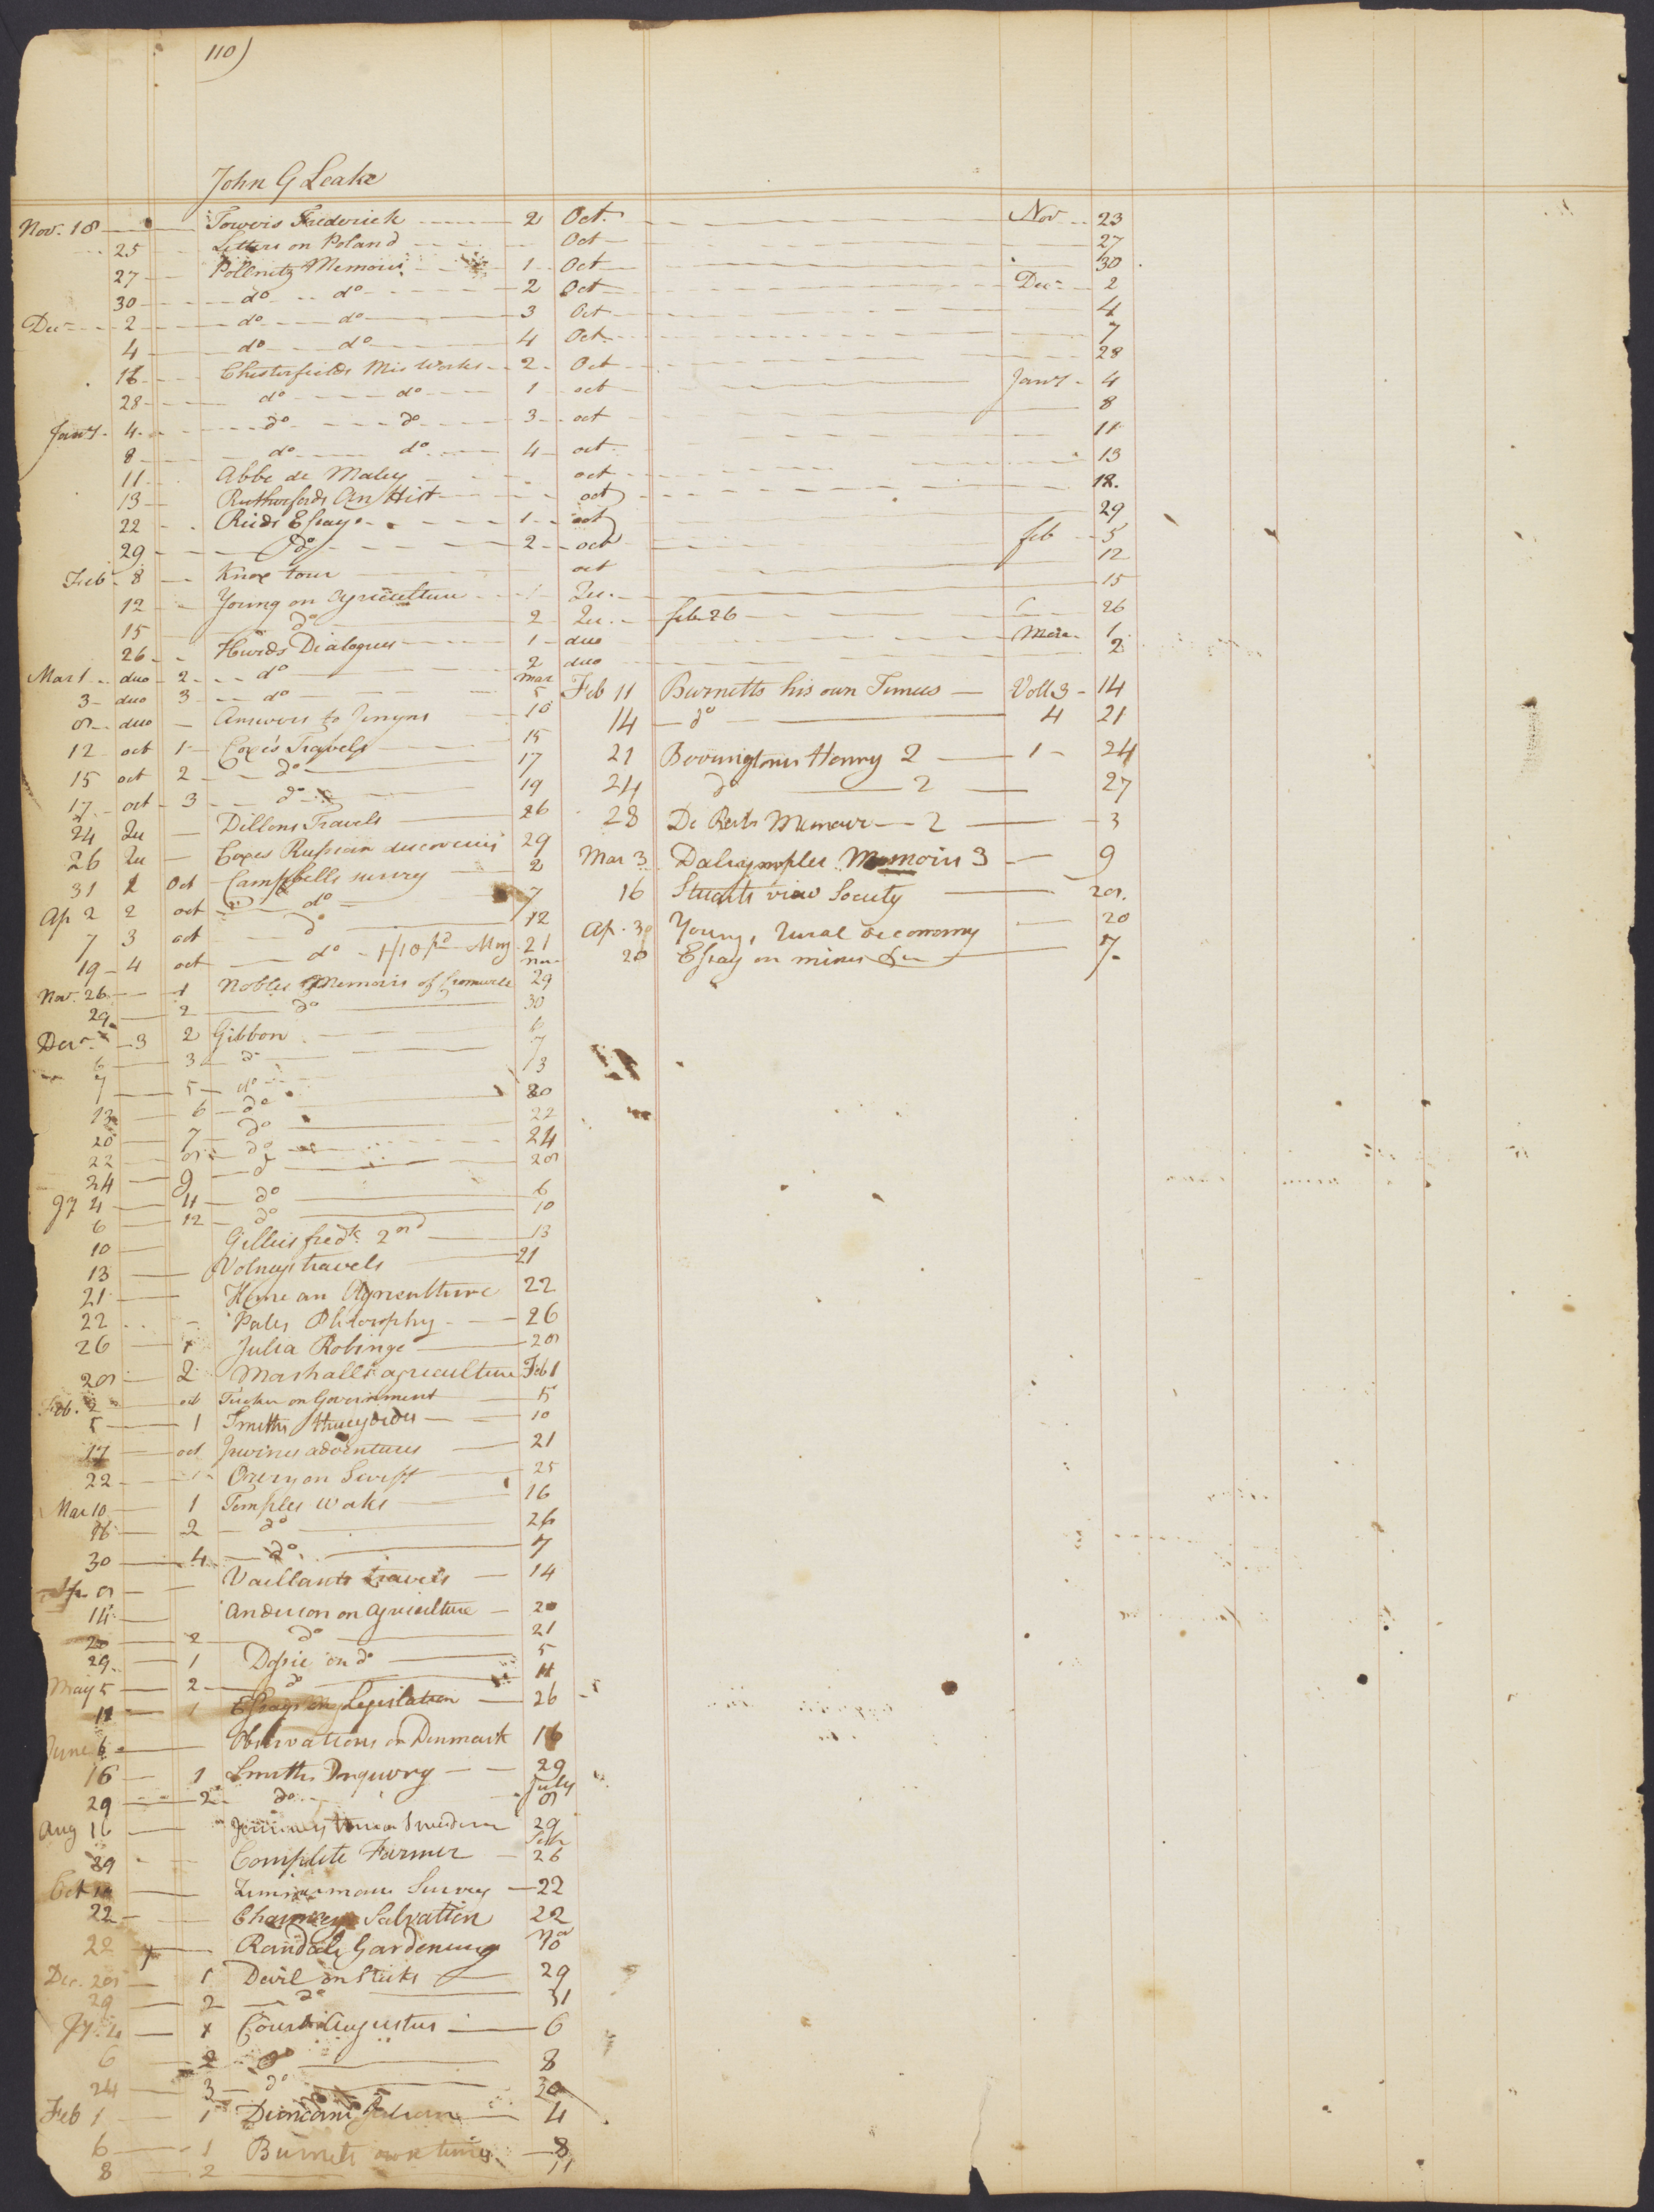 110)
John G Leake
Nov. 18 Towers Frederick 2 Oct. Nov 23
25 Letters on Poland Oct 27
27 Pollnitz Memoirs 1 Oct 30
30 do do 2 Oct Dec 2
Dec 2 do do 3 Oct 4
4 do do 4 Oct 7
16 Chesterfields Mis Works 2 Oct 28
28 do do 1 oct Jany 4
Jany 4 do do 3 oct 8
8 do do 4 oct 11
11 Abbe de Mably oct 13
13 Rutherfords An Hist oct 18.
22 Reids Essays 1 oct 29
29 do 2 oct feb 5
Feb 8 Knox tour oct 12
12 Young on agriculture 1 Qu. 15
15 do 2 Qu. feb 26 26
26 Hurds Dialogues 1 duo Mar 1
Mar 1 duo 2 do 2 duo 2
3 duo 3 do mar 5
8 duo Answers to Jenyns 10
12 oct 1 Coxe's Travels 15
15 oct 2 do 17
17 oct 3 do 19
24 Qu Dillons Travels 26
26 Qu Coxes Russian discoveries 29
31 1 Oct Campbells survey 2
Ap 2 2 oct do 7
7 3 oct do 12
19 4 oct do 1/10 pd May 21
Nov. 26 1 Nobles Memoirs of Cromwell Nov 29
29 2 do 30
Decr 3 2 Gibbon 6
6 3 do 7
7 5 do 13
13 6 do 20
20 7 do 22
22 8 do 24
24 9 do 28
Jy 4 11 do 6
6 12 do 10
10 Gillies fredk. 2nd 13
13 Volneys travels 21
21 Home on Agriculture 22
22 Paleys Philosophy 26
26 1 Julia Robinge 28
28 2 Marshalls agriculture Feb 1
Feb. 2 oct Tucker on Government 5
5 1 Smiths Thucydides 10
17 oct Irwines adventures 21
22 Orrery on Swift 25
Mar 10 1 Temples works 16
16 2 do 26
30 4 do 7
Ap 8 Vaillants travels 14
14 Anderson on agriculture 20
20 2 do 21
29 1 Dossie on do 5
May 5 2 do 11
11 1 Essays on Legislation 26
June 6 Observations on Denmark 16
16 1 Smiths Inquiry 29
29 2 do July 8
Aug 16 29
29 Complete Farmer Sept 26
Oct Zimmermans Survey 22
22 Chaunceys Salvation 22
22 Randals Gardening No 10
Dec. 28 1 Devil on Sticks 29
29 2 do 31
Jy. 4 1 Court Augustus 6
6 2 do 8
24 3 do 30
Feb 1 1 4
6 1 Burnets own times 8
8 2 11
Feb 11 Burnetts his own Times Voll 3 14
14 do 4 21
21 Berringtons Henry 2 1 24
24 do 2 27
28 De Retz Memoirs 2 3
Mar 3 Dalrymples Memoirs 3 9
16 Stuarts view Society 28.
Ap. 3 Youngs rural oeconomy 20
20 Essay on mines &c 7